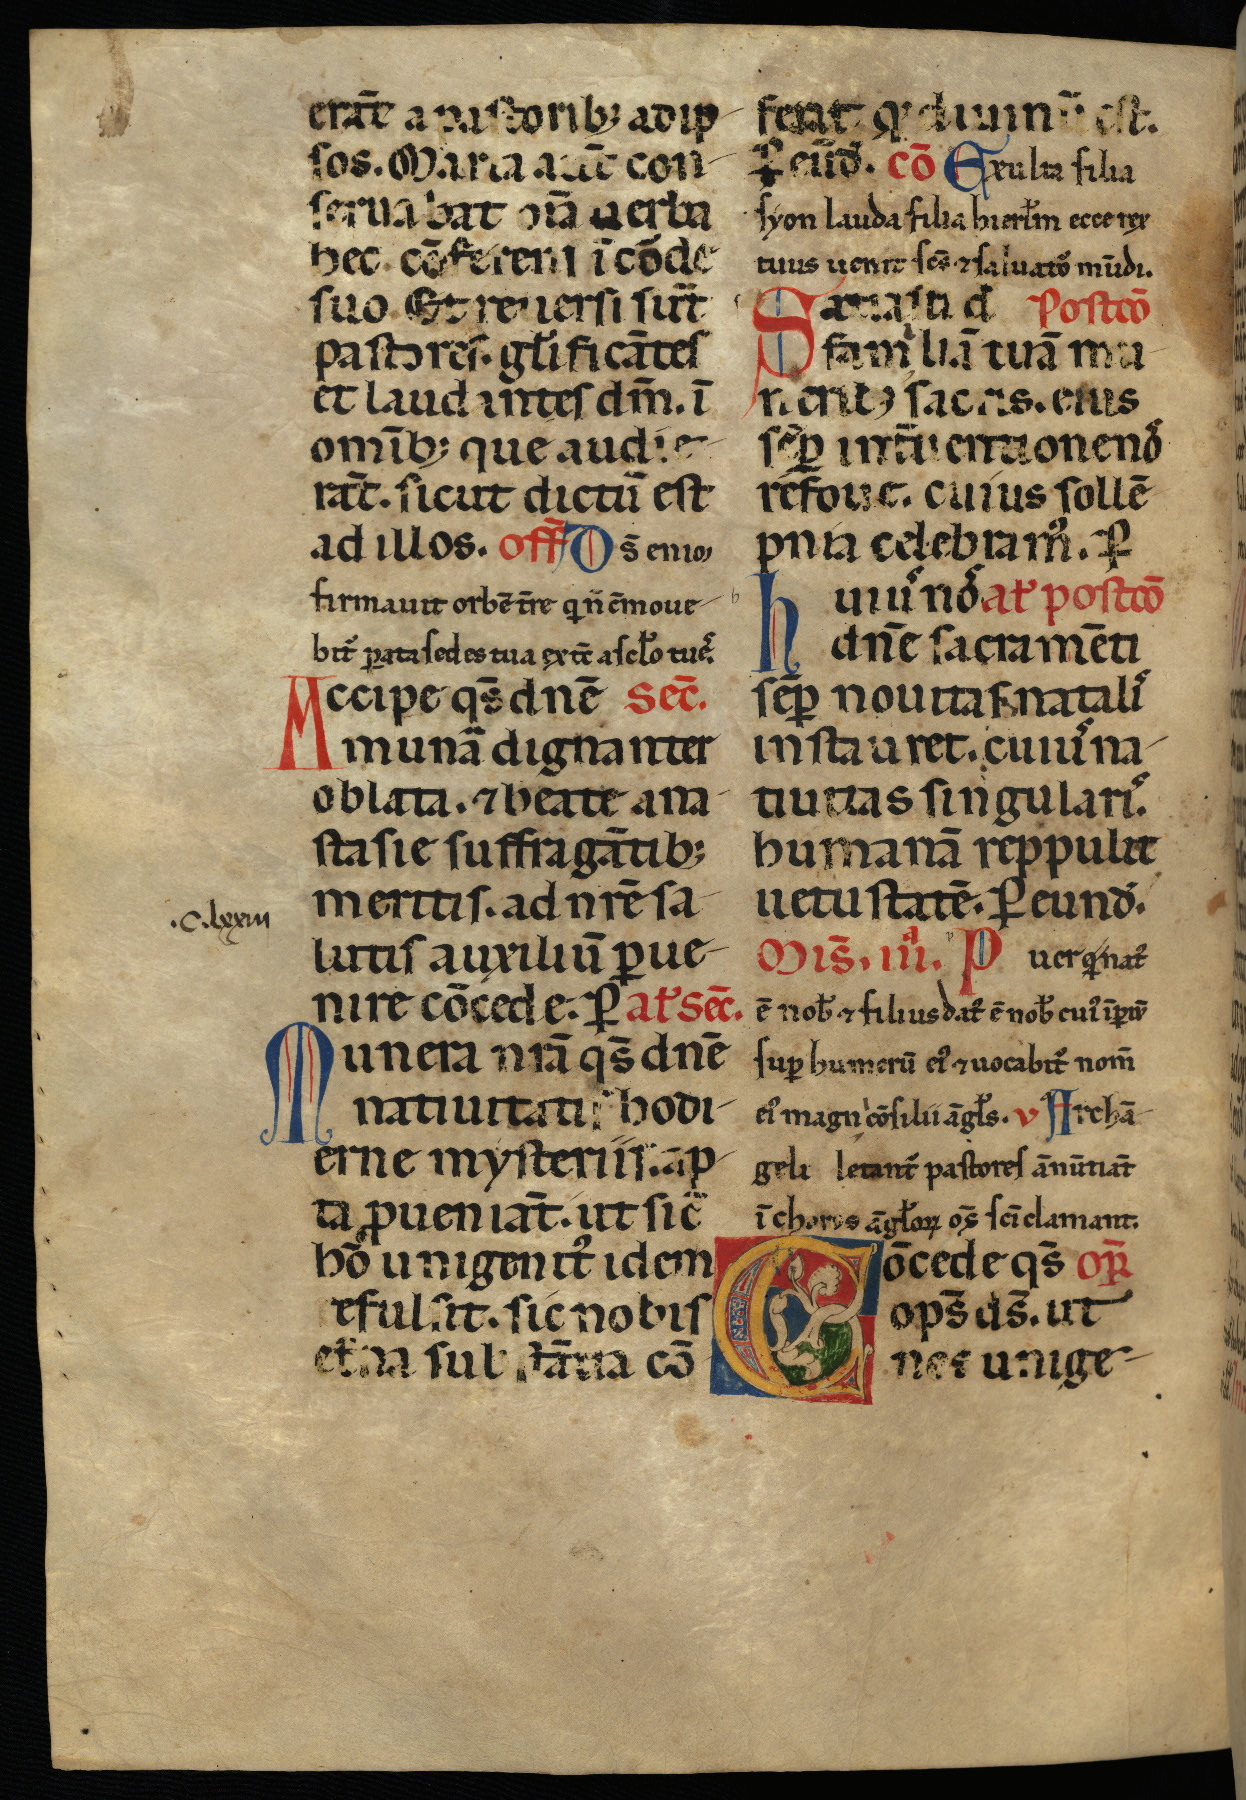 erāt a pastorib; ad ip-
sos. Maria aūt con-
seruabat om̄a uerba
hec cōferens ī corde
suo. Et reuersi sūt
pastores. gl̄ificātes
et laudantes dm̄. ī
omīb; que audie-
rāt. sicut dictū est
ad illos. off̄ Ds̄ enī
firmauit orbē tr̄e qui n̄ cōmoue-
bit᷑ parata sedes tua ex tc̄ a sclo tu es.
Accipe qs̄ dnē Sec̄.
munā dignanter
oblata. ⁊ beate ana-
stasie suffragātib;
meritis. ad nrē sa-
.C.lxxiii
lutis auxiliū ꝑue-
nire cōcede. P alt Sec̄.
Munera nrā qs̄ dnē
natiuitatis hodi-
erne mysteriis. ap-
ta ꝓueniāt. ut sic̄
hō unigenit᷒ idem
refulsit. sic nobis
et̄na substātia cō-
ferat qd diuinū est.
P eūd. cō Exulta filia
syon lauda filia hierlm̄ ecce rex
tuus uenit sc̄s ⁊ saluator mūdi.
Satiasti d̄ Postcō
familiā tuā mu-
nerib; sacris. eius
semꝑ int̄uentione nos
refoue. cuius sollē-
pnia celebram᷒. P
Huius nos alt postcō
dnē sacramēti
semꝑ nouitas natalis
instauret. cuius na-
tiuitas singularis.
humanā reppulit
uetustatē. P eund.
Mis̄. iii. a Puer qi nat᷒
ē nob ⁊ filius dat᷒ ē nob cui᷒ īperiū
suꝑ humerū ei᷒ ⁊ uocabit᷑ nom̄
ei᷒ magni cōsilii āgls. v Archā-
geli letant᷑ pastores ānūtiāt
ī choris āgloꝝ om̄s sc̄i clamant.
Cōcede qs̄ or̄
op̄s ds̄. ut
nos unige-